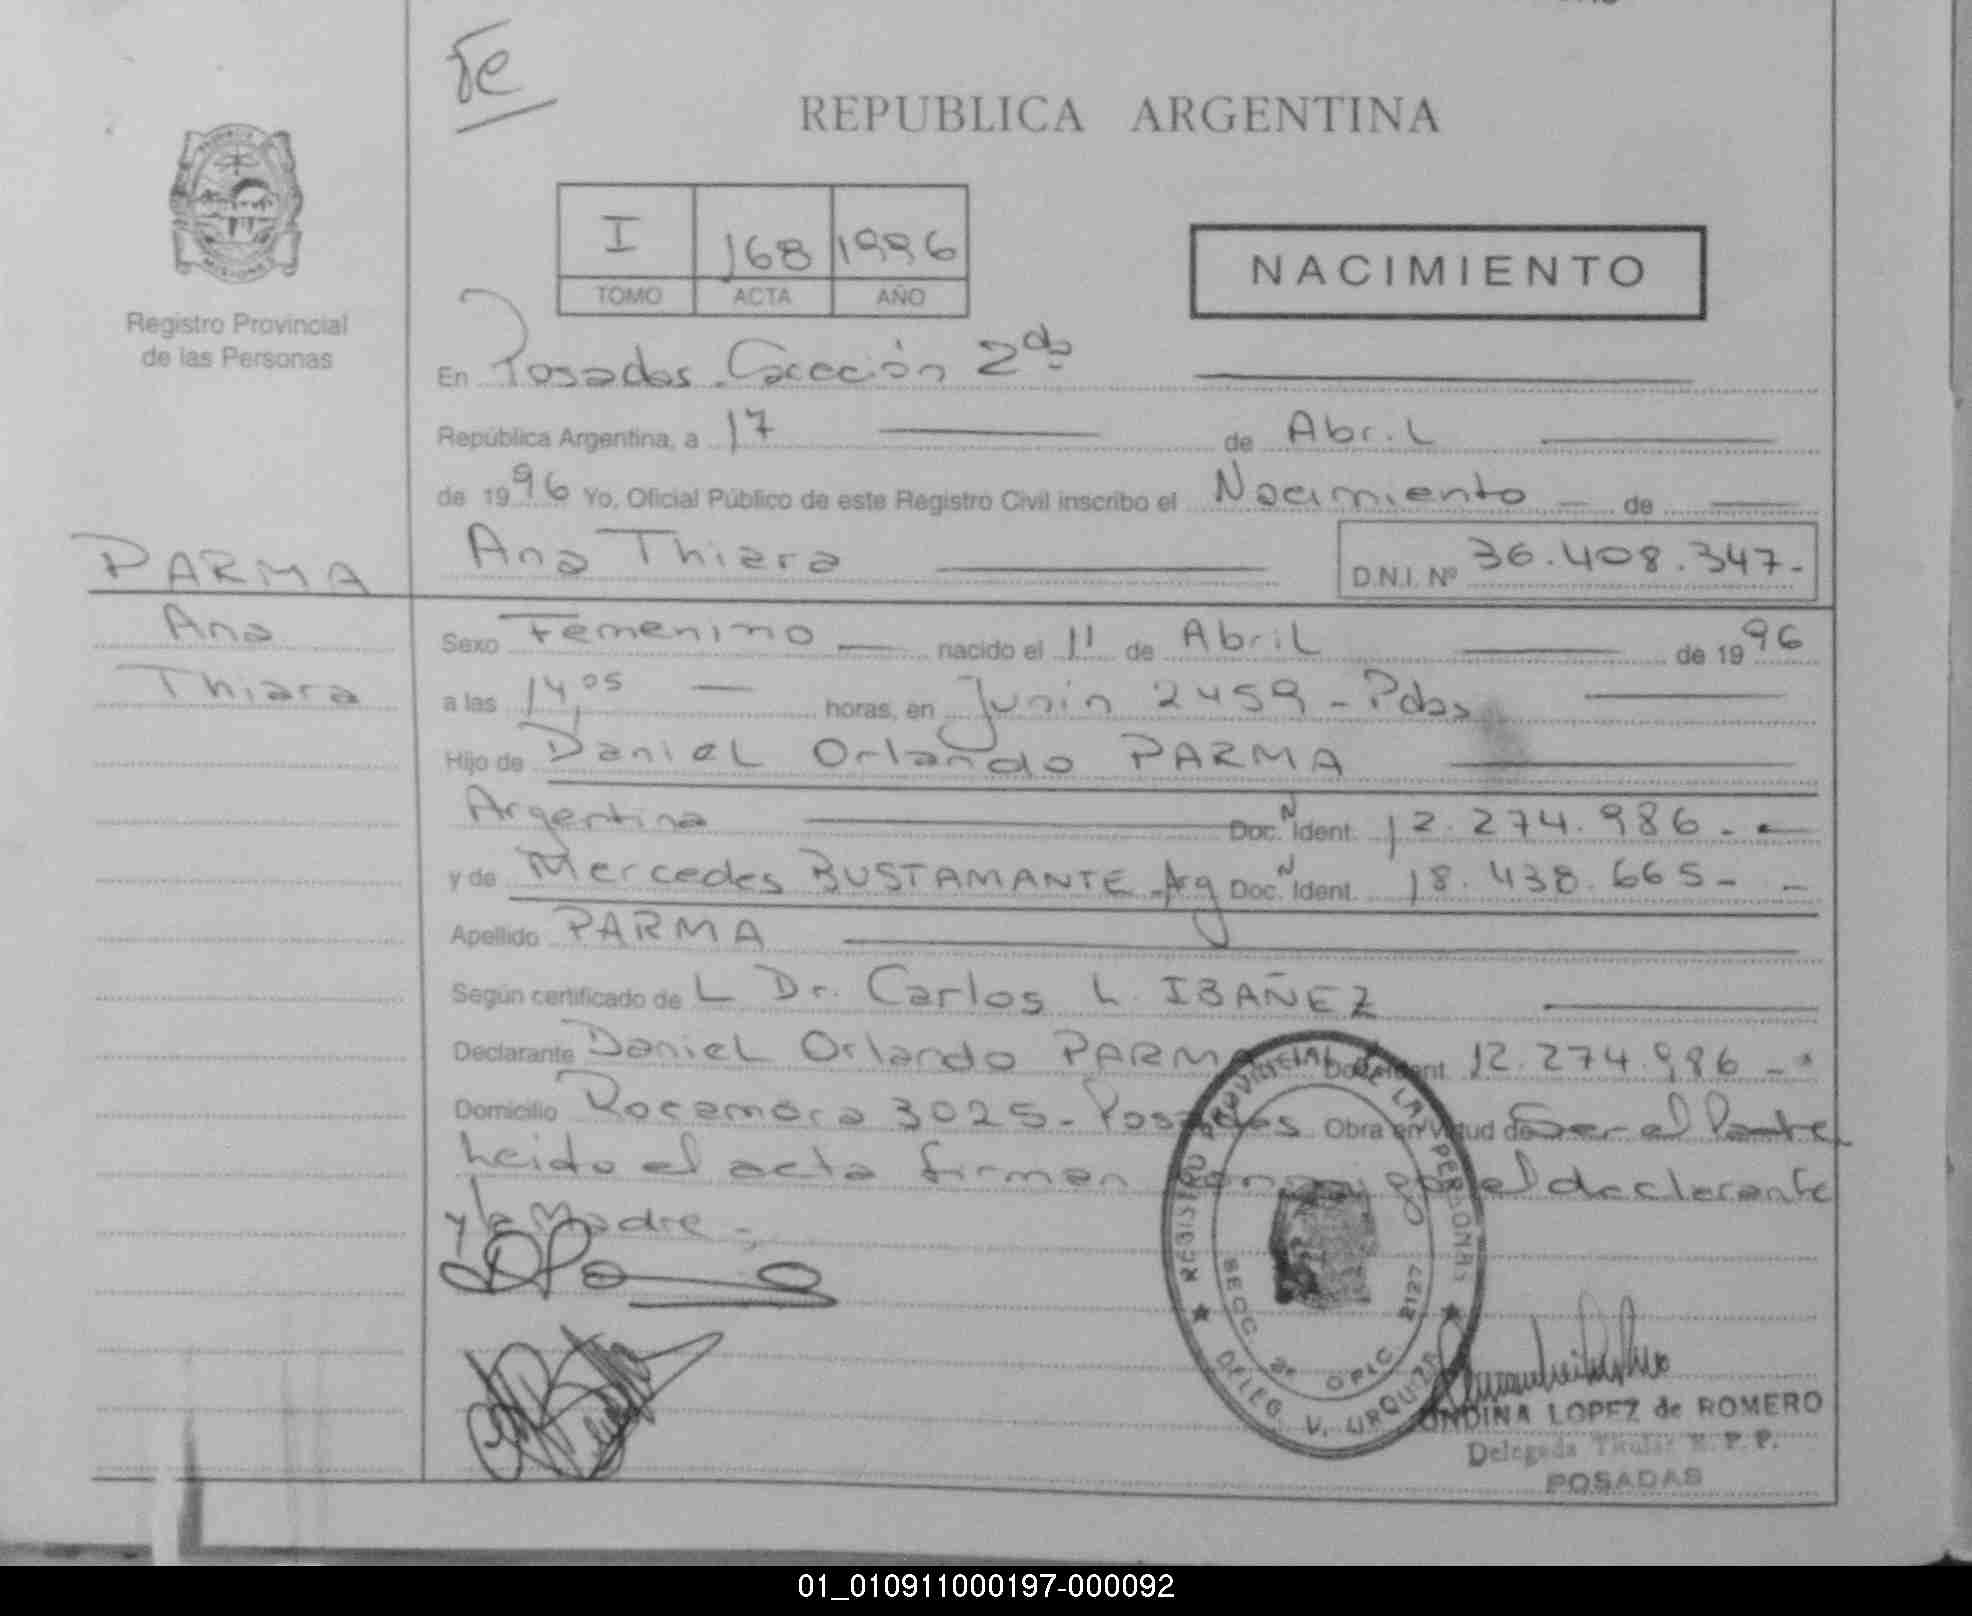 Fe
REPUBLICA ARGENTINA
I 168 1996
TOMO ACTA AÑO
NACIMIENTO
Registro Provincial
de las Personas
En Posadas Sección 2da
República Argentina, a 17 de Abril
de 1996 Yo, Oficial Público de este Registro Civil inscribo el Nacimiento de
PARMA
Ana Thiara D.N.I. Nº 36.408.347.-
Ana
Sexo Femenino nacido el 11 de Abril de 1996
Thiara
a las 14,05 horas, en Junin 2459 - Pdas
Hijo de Daniel Orlando PARMA
Argentina Doc. N Ident. 12.274.986.-
y de Mercedes BUSTAMANTE Arg Doc. N Ident. 18.438.665-
Apellido PARMA
Según certificado de L Dr. Carlos L. IBAÑEZ
Declarante Daniel Orlando PARMA Doc. Ident. 12.274.986 -
Domicilio Rocamora 3025- Posadas Obra en virtud de Ser el Padre
Leido el acta firman conmigo el declarante
y la Madre -
REGISTRO PROVINCIAL DE LAS PERSONAS
SECC. 2º O.P.I.C. 2127
DELEG. V. URQUIZA
ONDINA LOPEZ de ROMERO
Delegada Titular R. P. P.
POSADAS
01_010911000197-000092